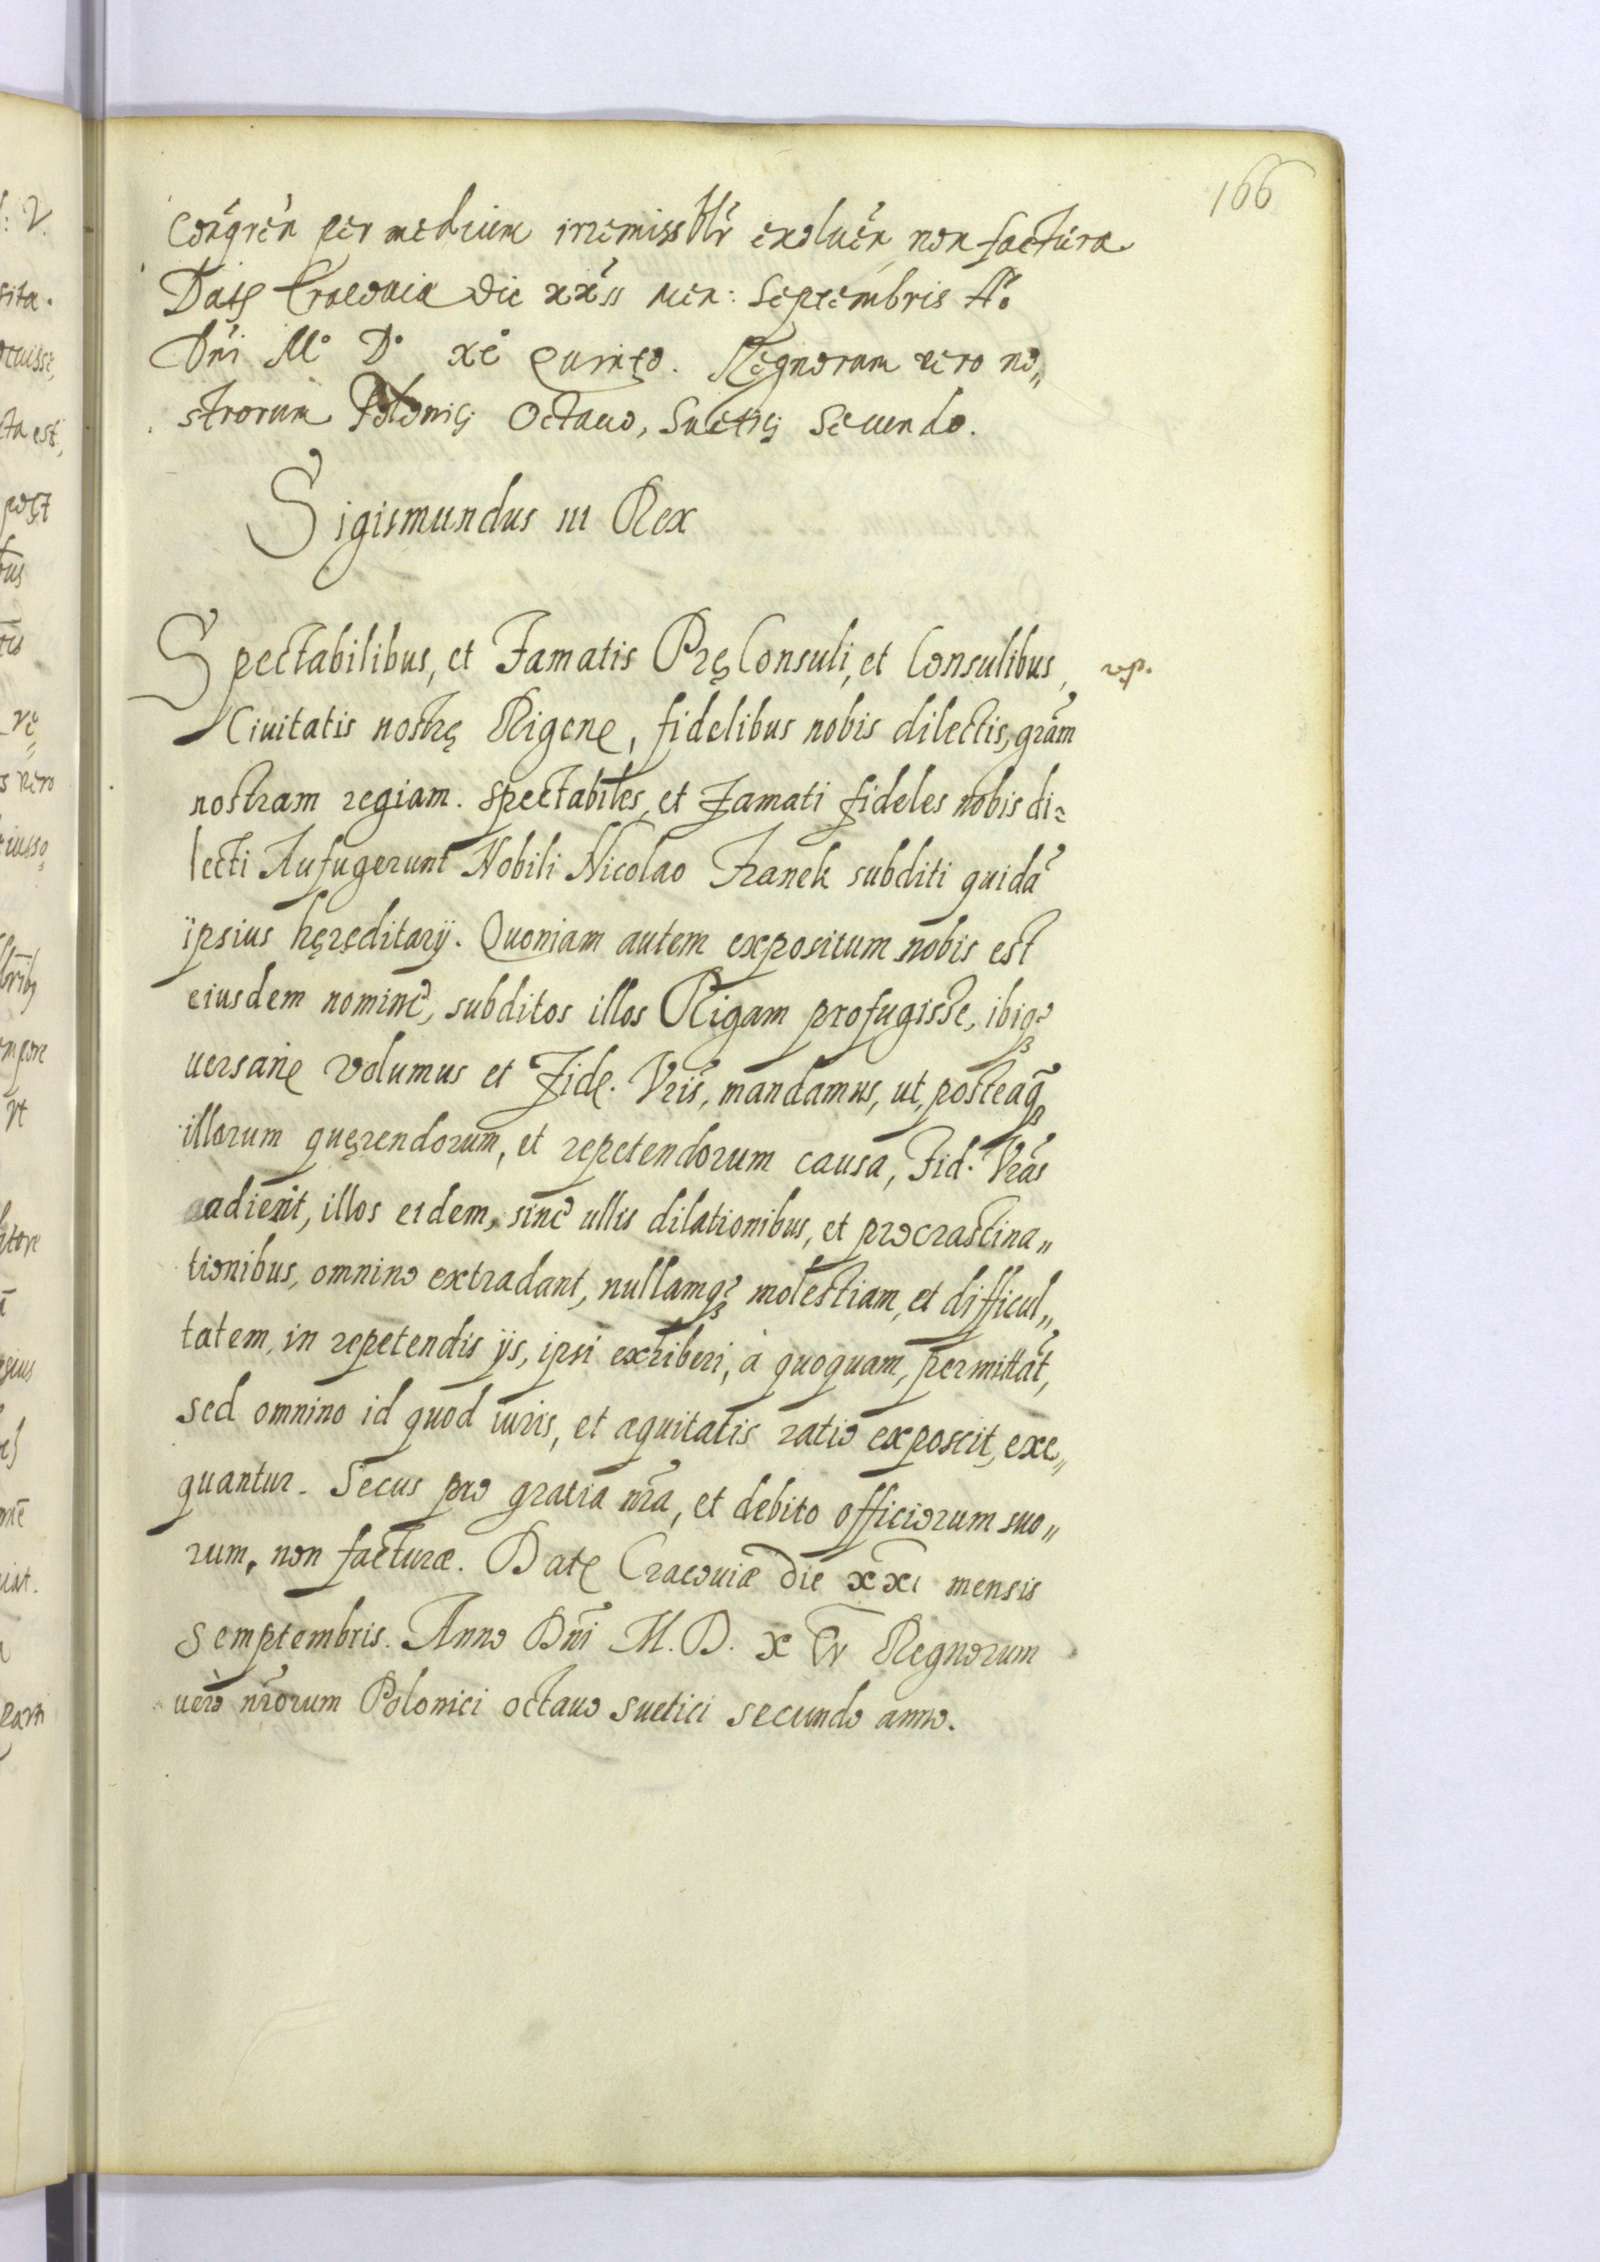 166
Congren per medium irremissblr exoluen non factura
Datę Cracouia die xxıı men: Septembris Aº
Dni Mº Dº xcº quinto. Regnorum uero no„
strorum Polonię Octauo, Suetię Secundo.
Sigismundus III Rex
Spectabilibus, et Famatis PręConsuli, et Consulibus,
Ciuitatis nostrę Rigenę, fidelibus nobis dilectis, grãm
nostram regiam. Spectabiles, et Famati fideles nobis di=
lecti Aufugerunt Nobili Nicolao Franek subditi quidã
ipsius hęreditarij. Quoniam autem expositum nobis est
eiusdem nominẽ, subditos illos Rigam profugisse, ibiq3
uersarię volumus et Fidę. Vris, mandamus, ut, posteaq̃
illorum quęrendorum, et repetendorum causa, Fid. Vrãs
adierit, illos eidem, sine ullis dilationibus, et procrastina„
tionibus, omnino extradant, nullamq3 molestiam, et difficul„
tatem, in repetendis ijs, ipsi exhiberi, à quoquam, permittãt,
sed omnino id quod iuris, et æquitatis ratio exposcit, exe„
quantur. Secus pro gratia nrã, et debito officiorum suo„
rum, non facturæ. Datę Cracouiæ die xxı mensis
Semptembris. Anno Dni M. D. x cv Regnorum
uero nrõrum Polonici octauo suetici secundo anno.